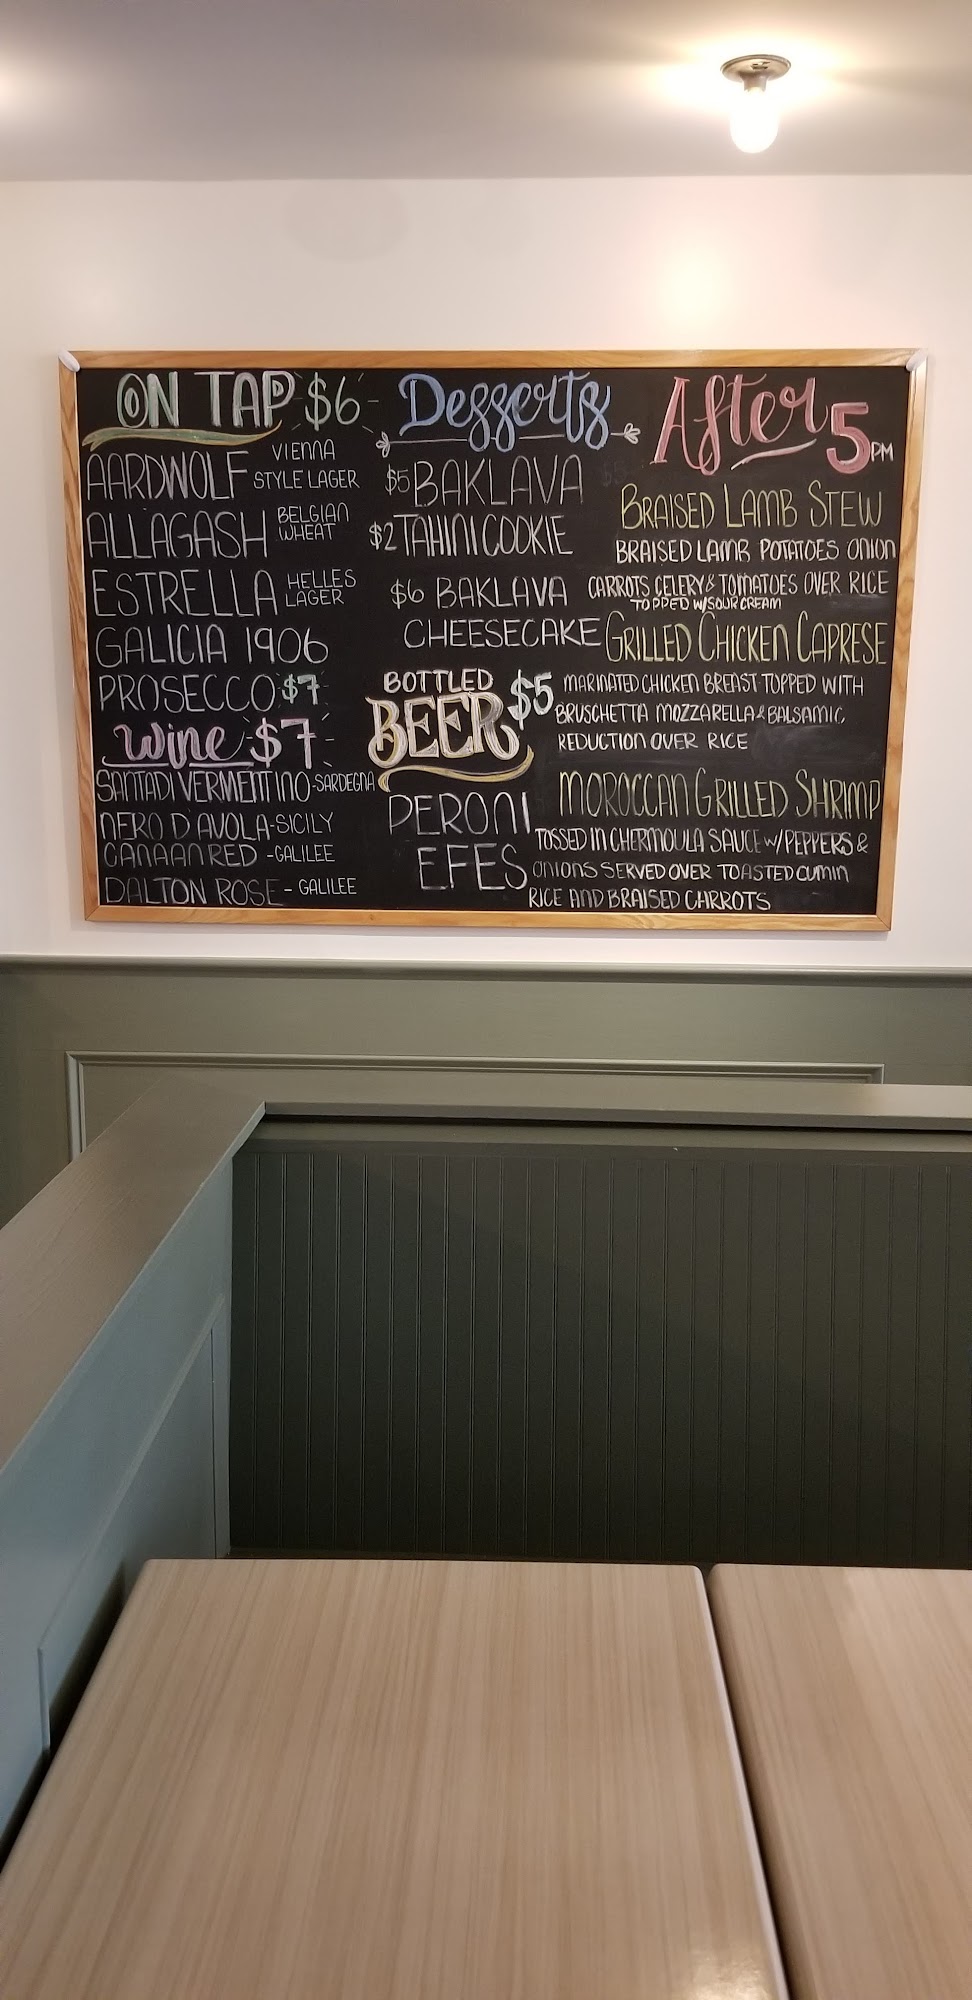 ON TAP $6
AARDWOLF VIENNA STYLE LAGER
ALLAGASH BELGIAN WHEAT
ESTRELLA HELLES LAGER
GALICIA 1906
PROSECCO $7
Wine $7
SANTADI VERMENTINO-SARDEGNA
NERO D'AVOLA-SICILY
CANAAN RED -GALILEE
DALTON ROSE - GALILEE
Desserts
$5 BAKLAVA
$2 TAHINI COOKIE
$6 BAKLAVA
CHEESECAKE
BOTTLED
BEER $5
PERONI
EFES
After 5 PM
BRAISED LAMB STEW
BRAISED LAMB POTATOES ONION
CARROTS CELERY & TOMATOES OVER RICE
TOPPED W/SOUR CREAM
GRILLED CHICKEN CAPRESE
MARINATED CHICKEN BREAST TOPPED WITH
BRUSCHETTA MOZZARELLA & BALSAMIC
REDUCTION OVER RICE
MOROCCAN GRILLED SHRIMP
TOSSED IN CHERMOULA SAUCE W/PEPPERS &
ONIONS SERVED OVER TOASTED CUMIN
RICE AND BRAISED CARROTS